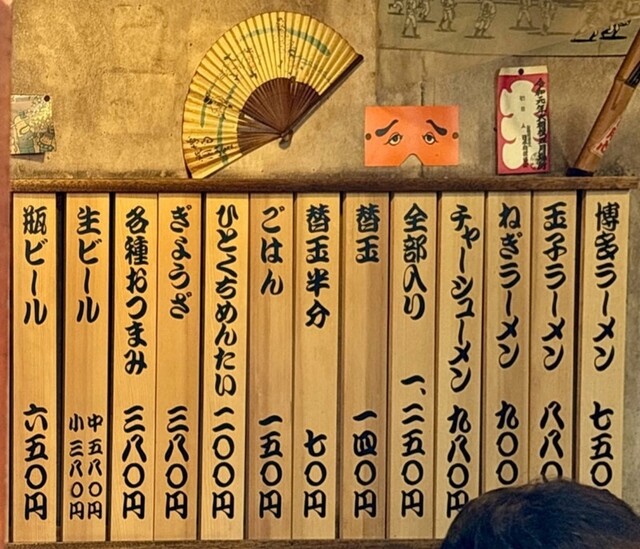 博多ラーメン 七五〇
玉子ラーメン 八八〇
ねぎラーメン 九〇〇
チャーシューメン 九八〇円
全部入り 一、二五〇円
替玉 一四〇円
替玉半分 七〇円
ごはん 一五〇円
ひとくちめんたい 二〇〇円
ぎょうざ 三八〇円
各種おつまみ 三八〇円
生ビール 中五八〇円 小三八〇円
瓶ビール 六五〇円